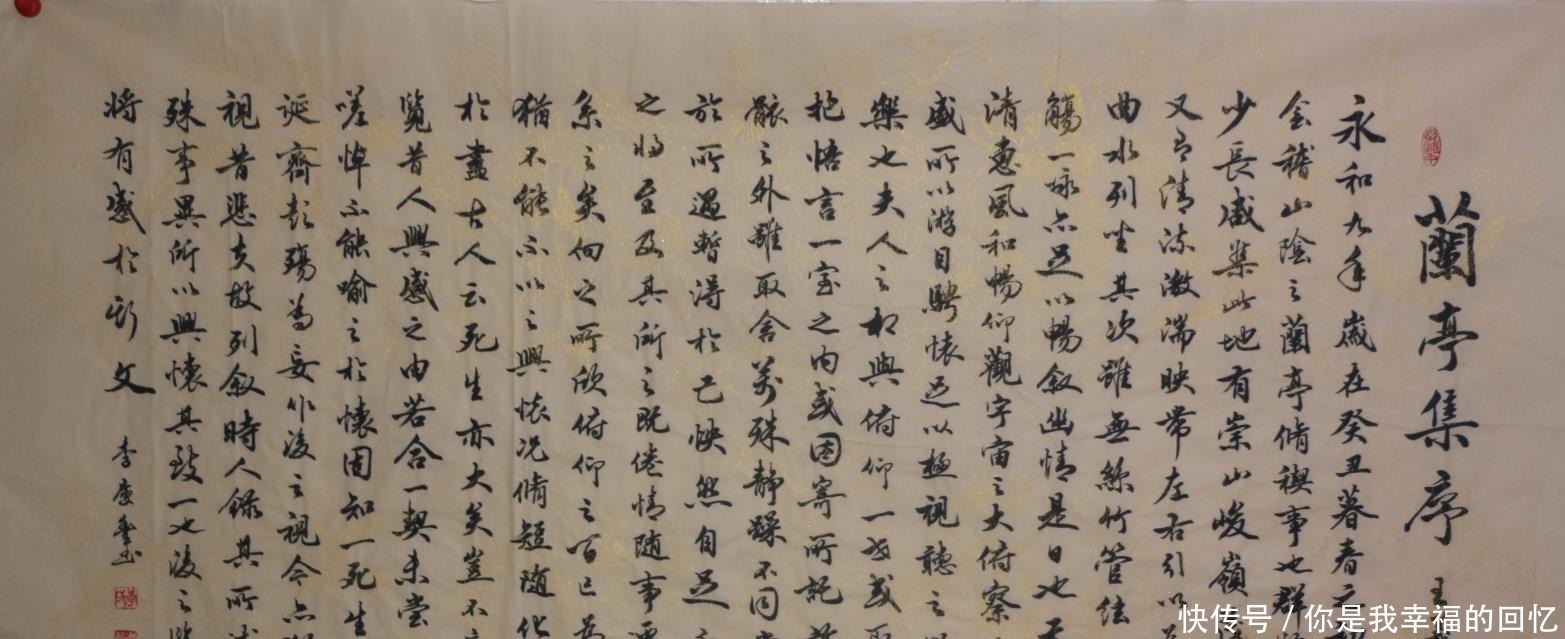 蘭亭集序
永和九年歲在癸丑暮春之
会稽山陰之蘭亭脩稧事也群
少長咸集此地有崇山峻嶺
又有清流激湍映帶左右引以
曲水列坐其次雖無絲竹管弦
觴一咏亦足以暢叙幽情是日也天
清惠風和暢仰觀宇宙之大俯察
盛所以游目騁懷足以極視聽之
樂也夫人之相與俯仰一世或取
抱悟言一室之内或因寄所託
骸之外雖取舍萬殊静躁不同
於所遇暫得於己怏然自足
之將至及其所之既倦情随事
係之矣向之所欣俯仰之間已為
猶不能不以之興懷况脩短随化
於盡古人云死生亦大矣豈不
覽昔人興感之由若合一契未嘗
嗟悼不能喻之於懷固知一死生
誕齊彭殤為妄作後之視今亦
視昔悲夫故列叙時人録其所
殊事異所以興懷其致一也後之
將有感於斯文
快传号 / 你是我幸福的回忆